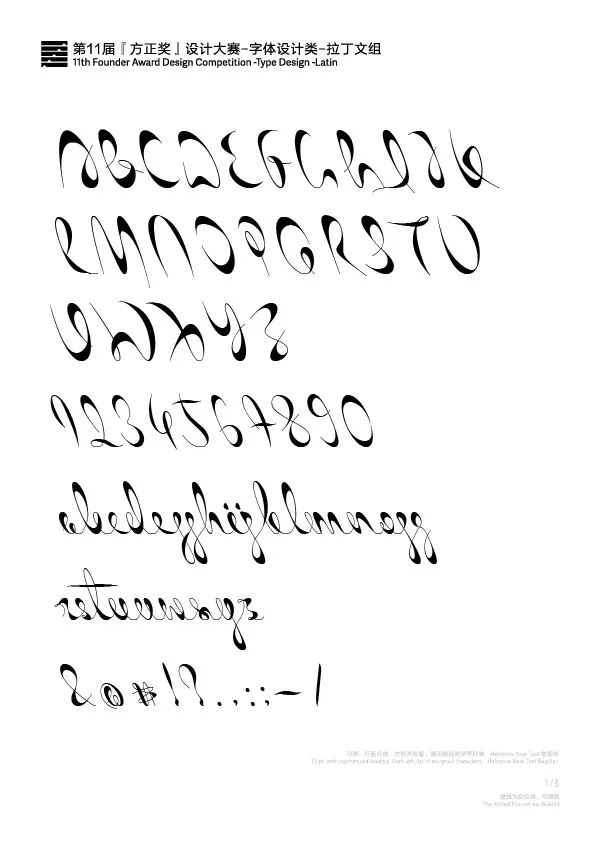 第11届『方正奖』设计大赛-字体设计类-拉丁文组
11th Founder Award Design Competition -Type Design -Latin
ABCDEFGHIJK
LMNOPQRSTU
VWXYZ
1234567890
abcdefghijklmnopq
rstuvwxyz
&@#!?.,:;-|
72磅,行距自由,左对齐检索,请用规定的字符列表,Helvetica Now Text 常规体
72 pt, with customized leading, flush left, list of assigned characters, Helvetica Now Text Regular.
1/3
虚线为示位线,可删除
The dotted line can be deleted